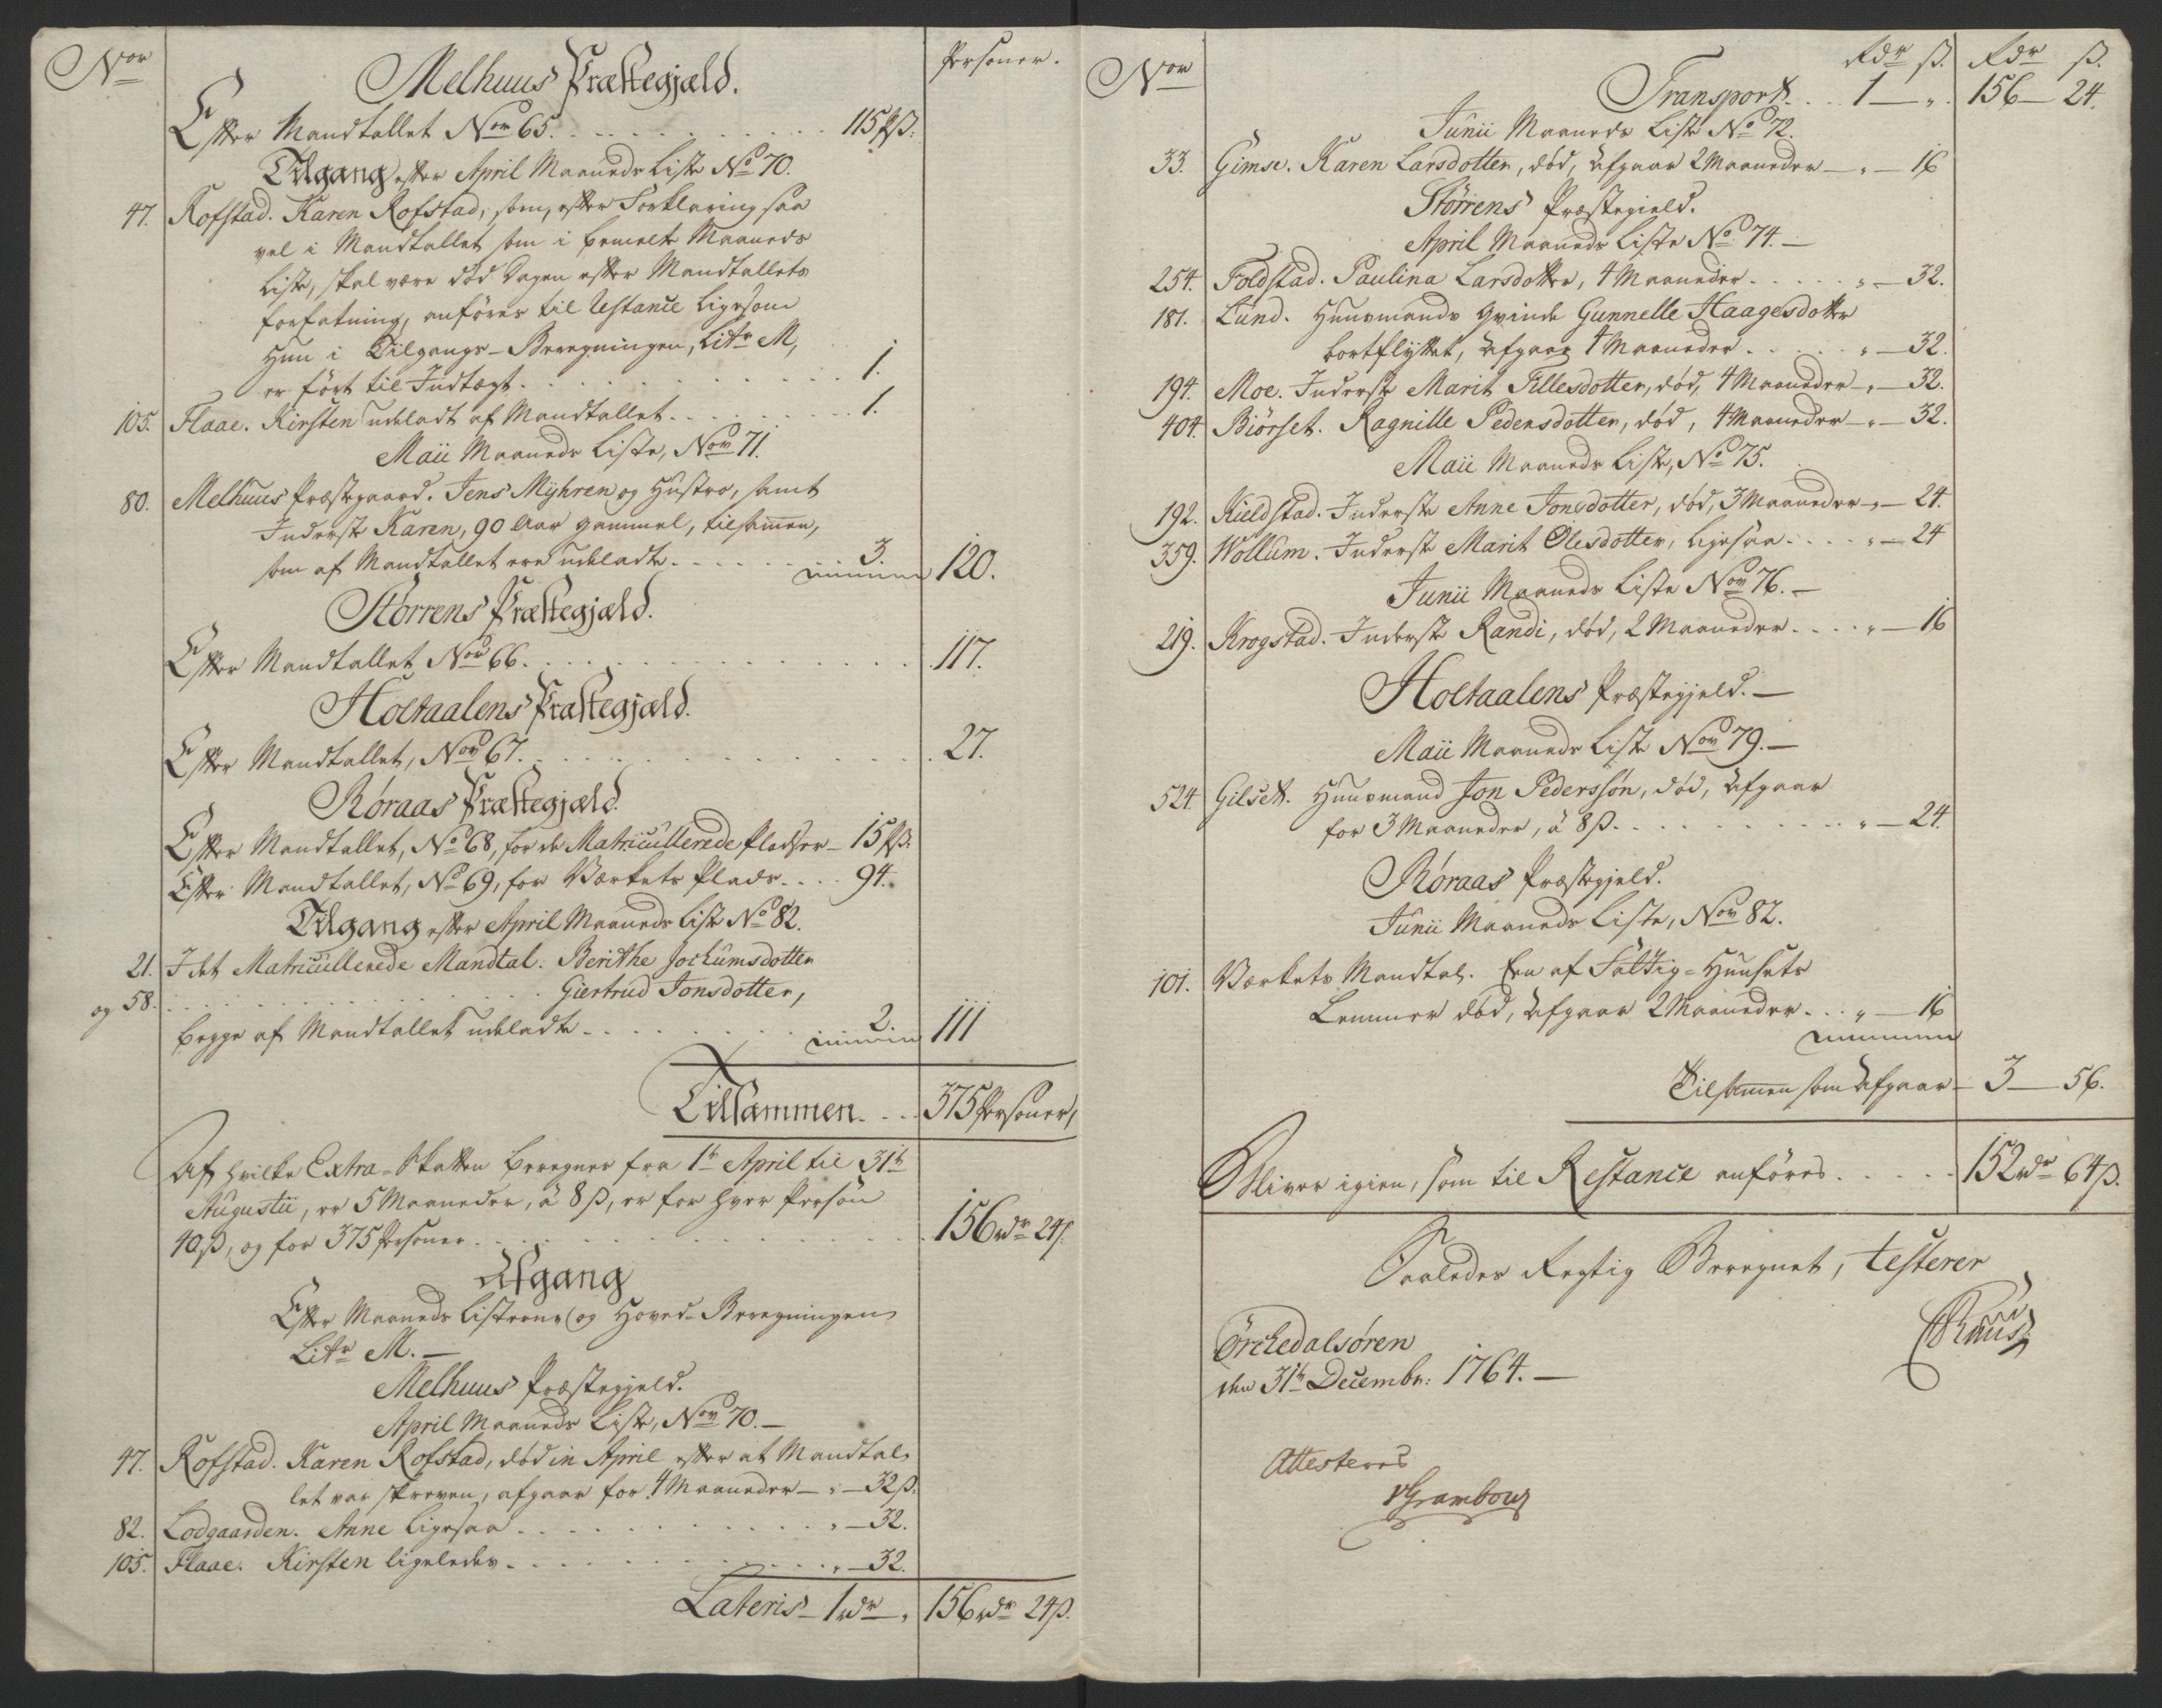 Nor
Personer.
Melhuus Præstegjæld.
Efter Mandtallet Nor 65. 115 Ps.
Tilgang efter April Maaneds Liste No 70.
47. Rofstad. Karen Rofstad, som, efter Forklaring saa
vel i Mandtallet som i bemelte Maaneds
Liste, skal være død Dagen efter Mandtallets
forfatning, anføres til Restance ligesom
Hun i Tilgangs-Beregningen, Litr M,
er ført til Indtægt. 1.
105. Flaae. Kirsten udeladt af Mandtallet. 1.
Maii Maaneds Liste, Nor 71.
80. Melhuus Præstegaard. Jens Myhren og Hustro, samt
Inderste Karen, 90 Aar gammel, tilsammen,
som af Mandtallet ere udeladte. 3. 120.
Størrens Præstegjæld.
Efter Mandtallet Nor 66. 117.
Holtaalens Præstegjæld.
Efter Mandtallet, Nor 67. 27.
Røraas Præstegjæld.
Efter Mandtallet, No 68, for de Matricullerede Pladser - 15 Ps.
Efter Mandtallet, No 69, for Værkets Plads. 94.
Tilgang efter April Maaneds Liste No 82.
21. I det Matricullerede Mandtal. Berithe Jochumsdotter
og 58. Giertrud Jonsdotter,
begge af Mandtallet udeladte. 2. 111
Tilsammen. 375 Personer,
Af hvilke Extra-Skatten beregnes fra 1te April til 31te
Augustii, er 5 Maaneder, á 8 ß, er for hver Person
40 ß, og for 375 Personer. 156 rdr 24 ß.
Afgang
Efter Maaneds Listerne og Hoved-Beregningen
Litr M. -
Melhuus Præstegjeld.
April Maaneds Liste, Nor 70. -
47. Rofstad. Karen Rofstad, død in April efter at Mandtal
let var skreven, afgaar for 4 Maaneder - " - 32 ß.
82. Lodgaarden. Anne ligesaa. " - 32.
105. Flaae. Kirsten ligeledes. " - 32.
Lateris - 1 rdr " 156 rdr 24 ß.
Nor
Rdr ß. Rdr ß.
Transport. 1 - " . 156 - 24.
Junii Maaneds Liste No 72.
33. Gimse. Karen Larsdotter, død, Afgaar 2 Maaneder - " - 16
Størrens Præstegield.
April Maaneds Liste No 74. -
254. Foldstad. Paulina Larsdotter, 4 Maaneder. " - 32.
181. Lund. Huusmands Qvinde Gunnelle Haagesdotter
bortflyttet, Afgaar 4 Maaneder. " - 32.
194. Moe. Inderste Marit Tillesdotter, død, 4 Maaneder - " - 32.
404. Biørset. Ragnille Pedersdotter, død, 4 Maaneder - " - 32.
Maii Maaneds Liste, No 75.
192. Kieldstad. Inderste Anne Jonsdotter, død, 3 Maaneder - " - 24.
359. Wollum. Inderste Marit Olesdotter, ligesaa. " - 24
Junii Maaneds Liste Nor 76. -
219. Krogstad. Inderste Randi, død, 2 Maaneder. " - 16
Holtaalens Præstegjeld. -
Maii Maaneds Liste Nor 79. -
524. Gilset. Huusmand Jon Pedersøn, død, Afgaar
for 3 Maaneder, á 8 ß. " - 24.
Røraas Præstegjeld.
Junii Maaneds Liste, Nor 82.
101. Værkets Mandtal. En af Fattig-Huusets
Lemmer død, Afgaar 2 Maaneder. " - 16
Tilsammen som Afgaar - 3 - 56.
Bliver igien, som til Restance anføres. 152 rdr 64 ß.
Saaledes Regtig Beregnet, testerer
Ørckedalsøren
den 31te Decembr: 1764. -
Attesteres